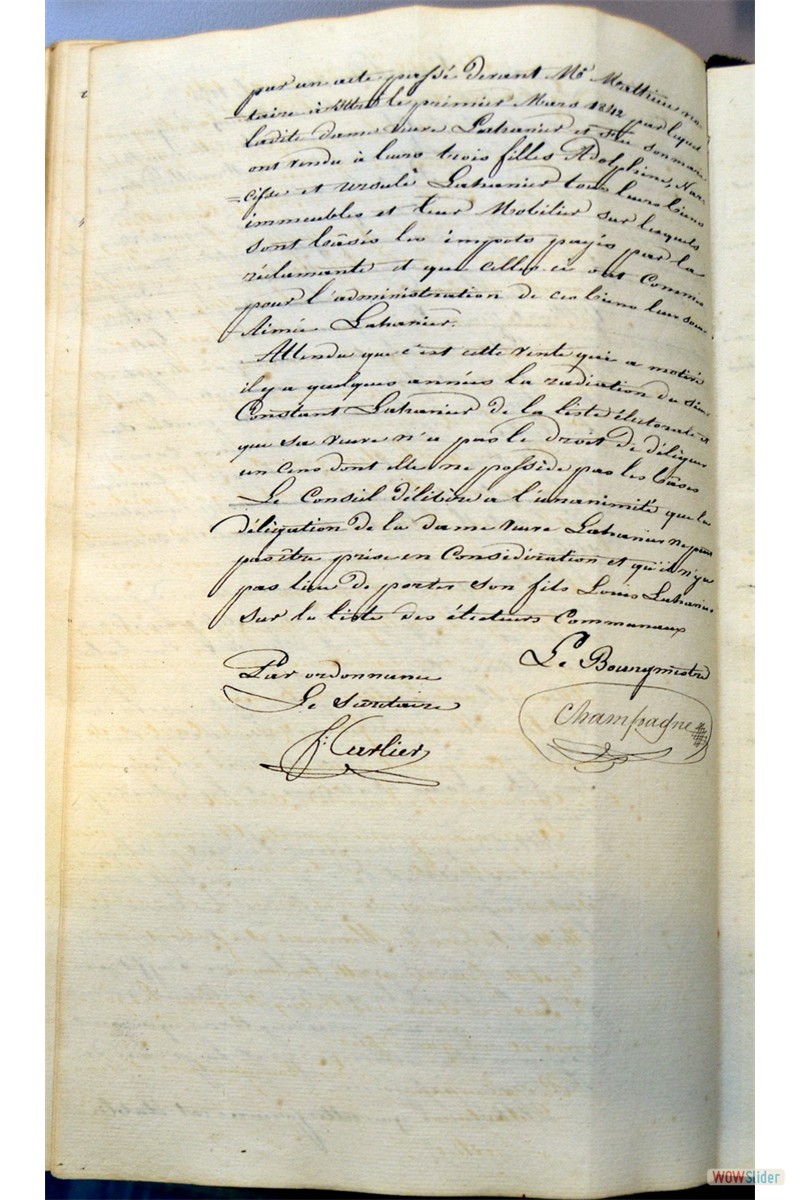 par un acte passé devant Mr Mathieu no-
taire à Ittre le premier Mars 1842 par lequel
ladite dame veuve Lahanier et feu son mari
ont vendu à leurs trois filles Adolphine, Nar-
=cisse et Ursule Lahanier tous leurs biens
immeubles et leur Mobilier sur lesquels
sont bâsés les impots payés par la
réclamante et que celles-ci ont commis
pour l'administration de ces biens leur sœur
Aimée Lahanier.
Attendu que c'est cette vente qui a motivé
il y a quelques années la radiation du sieur
Constant Lahanier de la liste électorale et
que sa veuve n'a pas le droit de déléguer
un cens dont elle ne possède pas les bâses
Le Conseil délibère à l'unanimité que la
délégation de la dame veuve Lahanier ne peut
pas être prise en Considération et qu'il n'y a
pas lieu de porter son fils Louis Lahanier
sur la liste des électeurs Communaux
Le Bourgmestre
Par ordonnance
Le Secrétaire
Champagne
J: Carlier
WOWSlider